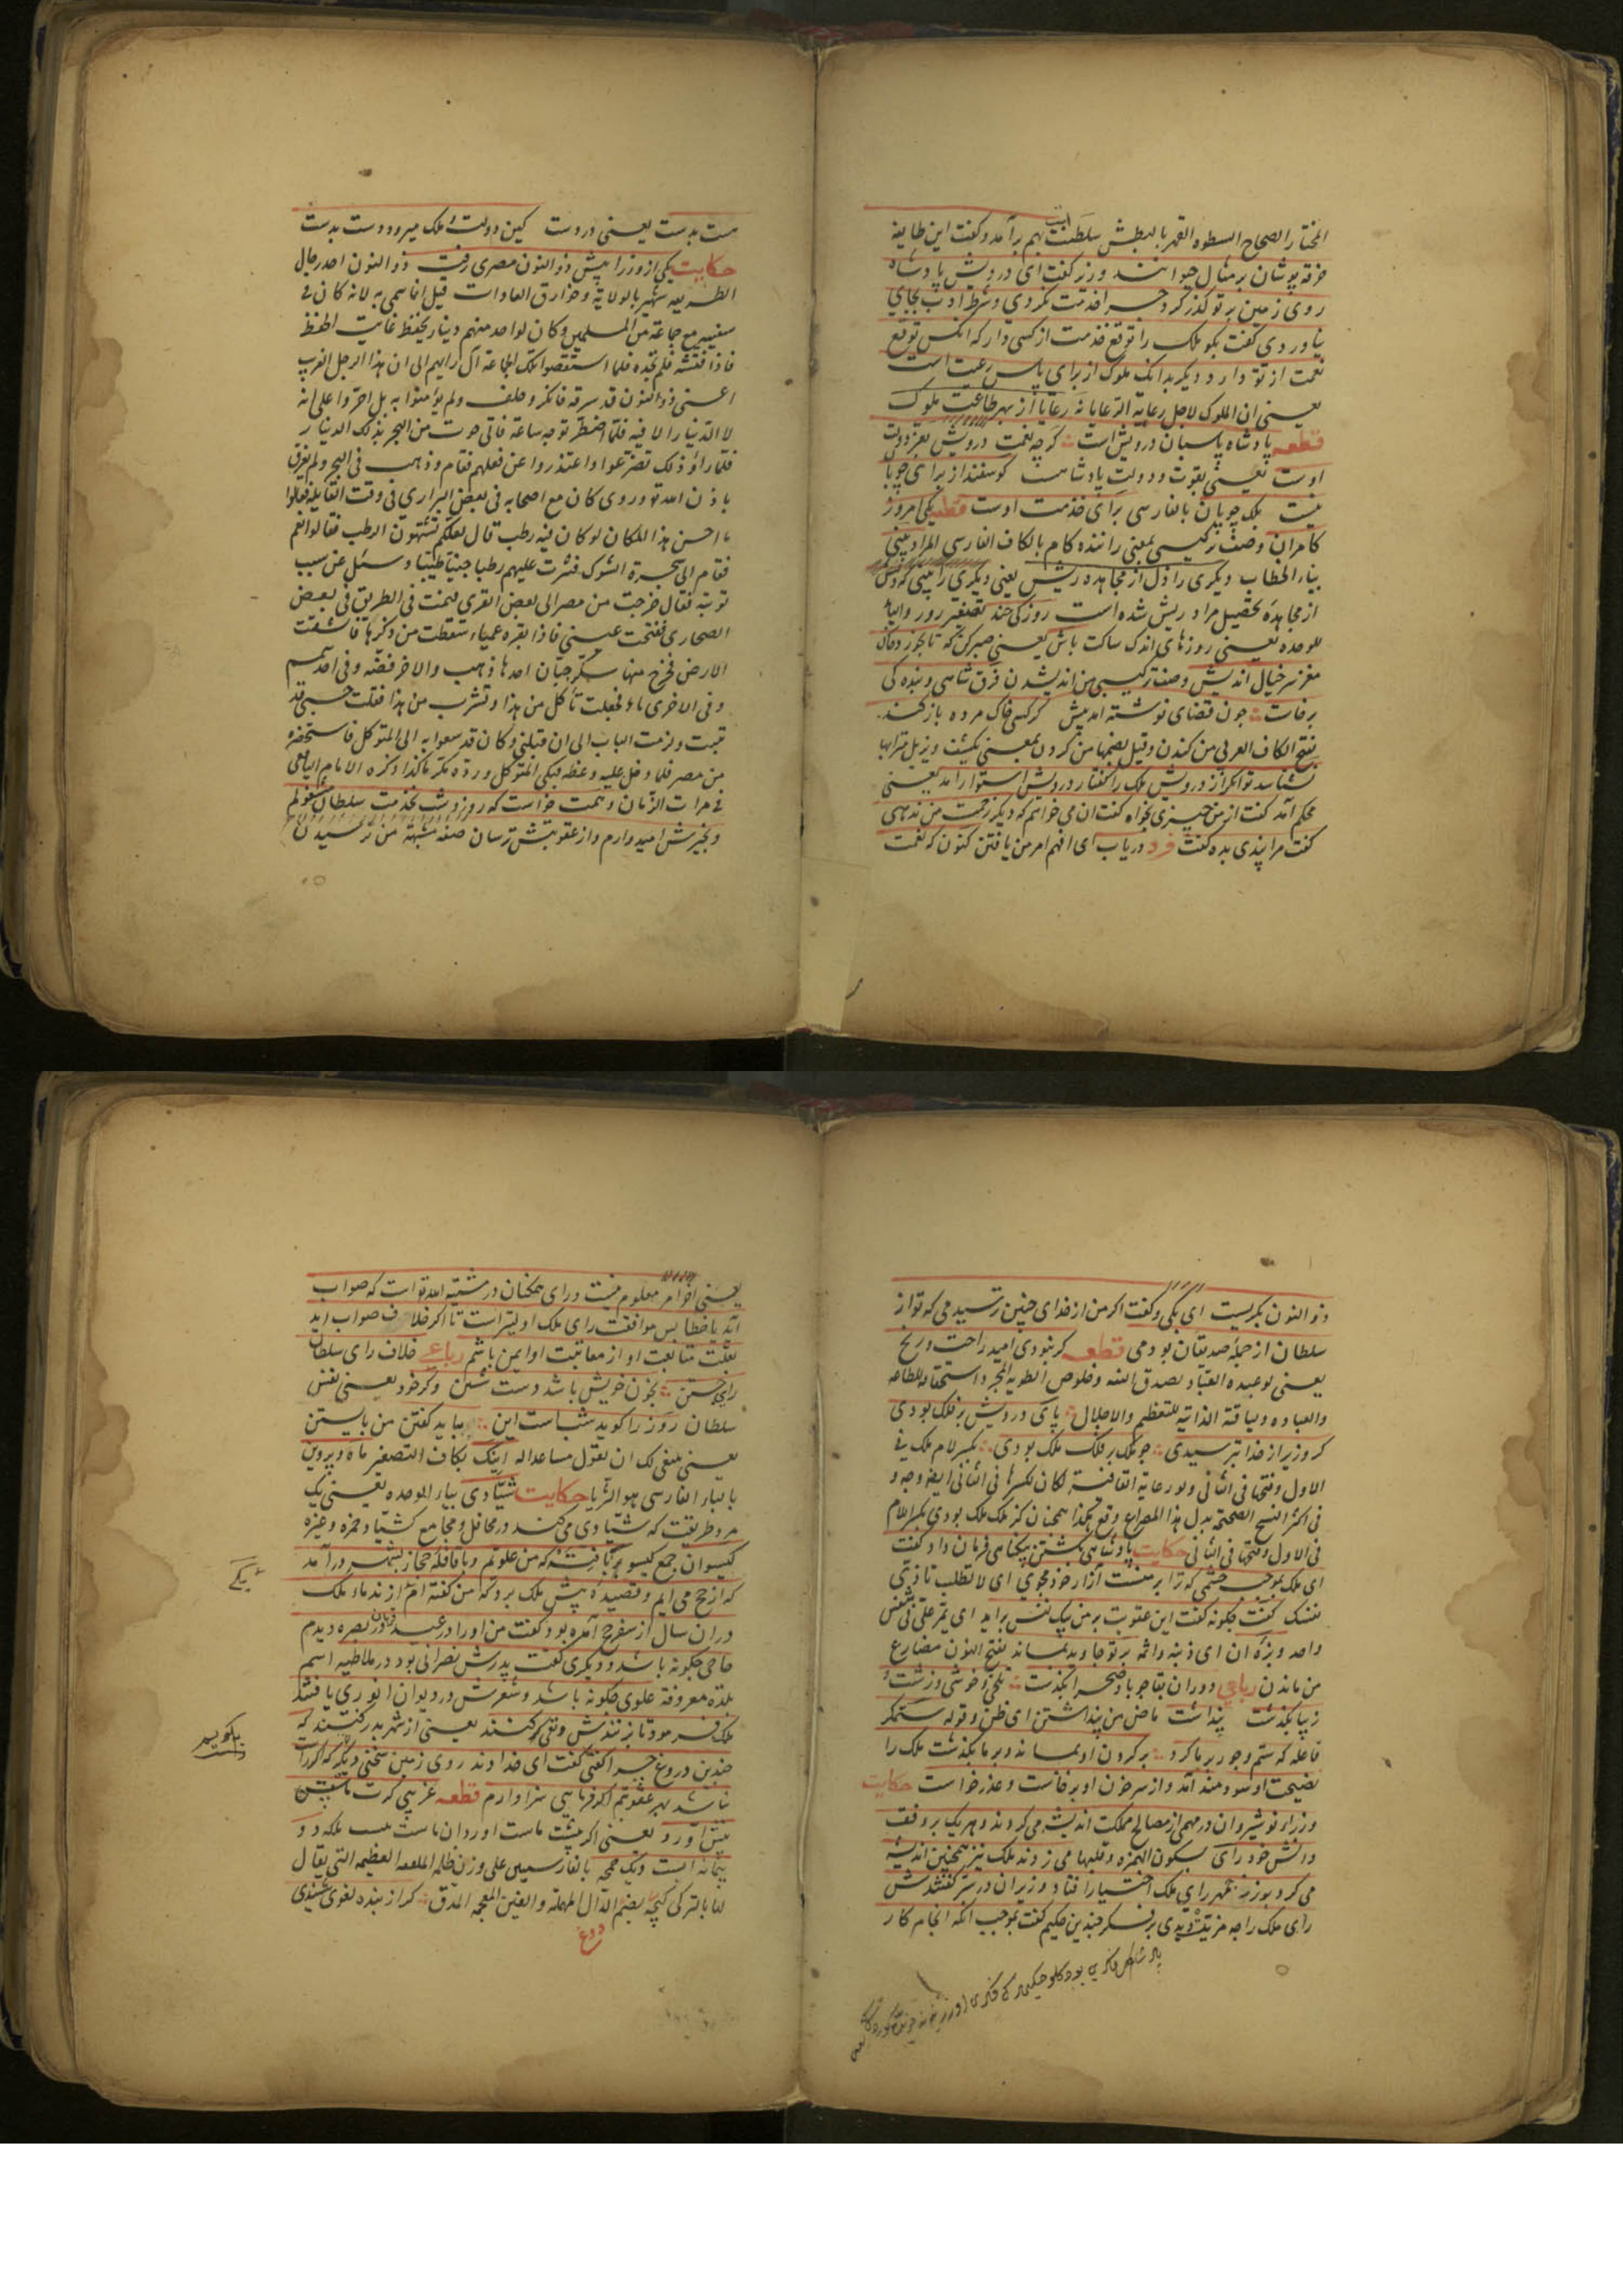 المختار الصحاح السطوه القهر بالبطش سلطنت بهم بر آمد وکفت این طایفه
خرقه پوشان بر مثال حیوانند وزیر کفت ای درویش پادشاه
روی زمین بر تو کذر کرد چرا خدمت نکردی وشرط ادب بجای
نیاوردی کفت بکو ملک را توقع خدمت از کسی دار که انکس توقع
نعمت از تو دارد ودیکر بدانک ملوک از برای پاس رعیت است
یعنی ان الملوک لاجل رعایة الرعایا نه رعایا از بهر طاعت ملوک
قطعه پادشاه پاسبان درویش است کرچه نعمت درویش بفر دولت
اوست یعنی بقوت ودولت پادشاهست کوسفند از برای چوپان
نیست بلک چوپان بالفارسی برای خدمت اوست قطعه یکی امروز
کامران وصف ترکیبی بمعنی راننده کام بالکاف الفارسی المراد بینی
بیاء الخطاب دیکری را دل از مجاهده ریش یعنی دیکری را بینی که دلش
از مجاهدهٔ تحصیل مراد ریش شده است روزکی چند تصغیر روز والیاء
للوحده یعنی روزهای اندک ساکت باش یعنی صبر کن که تا بخورد خاک
مغز سر خیال اندیش وصف ترکیبی من اندیشدن فرق شاهی وبنده کی
برخاست چون قضای نوشته امد پیش کر کسی خاک مرده باز کند
بفتح الکاف العربی من کندن وقیل بضمها من کردن بمعنی یکشف ویزیل ترابها
نشناسد توانکر از درویش ملک را کفتار درویش استوار آمد یعنی
محکم آمد کفت از من چیزی بخواه کفت ان می خواهم که دیکر زحمت من ندهی
کفت مرا پندی بده کفت فرد دریاب ای افهم امر من یافتن کنون که نعمت
ست بدست یعنی در دست کین دولت وملک میرود دست بدست
حکایت یکی از وزرا پیش ذو النون مصری رفت ذو النون احد رجال
الطریقه شهیر بالولایة وخوارق العادات قیل انما سمی به لانه کان فی
سفینه مع جماعة من المسلمین وکان لواحد منهم دینار یحفظ غایت الحفظ
فاذا فتشه فلم یجده فلما استقصوا تلک الجماعة آل رایهم الی ان هذا الرجل الغریب
اعنی ذو النون قد سرقه فانکر وحلف ولم یؤمنوا به بل اصروا علی انه
لا الدینار الا فیه فلما اضطر توجه ساعة فاتی حوت من البحر بذلک الدینار
فلما راؤ ذلک تضرعوا واعتذروا عن فعلهم فقام وذهب فی البحر ولم یغرق
باذن الله تع وروی کان مع اصحابه فی بعض البراری فی وقت القایله فقالوا
ما احسن هذا المکان لو کان فیه رطب قال لعلکم تشتهون الرطب فقالوا نعم
فقام الی شجرة الشوک فنثرت علیهم رطبا جنیا طیبا وسئل عن سبب
توبته فقال خرجت من مصر الی بعض القری فنمت فی الطریق فی بعض
الصحاری ففتحت عینی فاذا بقبره عمیاء سقطت من وکرها فانشقت
الارض فخرج منها سکرجتان احدها ذهب والاخر فضه وفی احد سمسم
وفی الاخری ماء فجعلت تأکل من هذا وتشرب من هذا فقلت حسبی قد
تبت ولزمت الباب الی ان قبلنی وکان قد سعوا به الی المتوکل فاستحضره
من مصر فلما دخل علیه وعظه فبکی المتوکل ورده مکرما کذا ذکره الامام الیافعی
فی مرآت الزمان وهمت خواست که روز وشب بخدمت سلطان مشغولم
وبخیرش امیدوارم واز عقوبتش ترسان صفه مشبهة من ترسیدن
ذو النون بکریست ای بکی وکفت اکر من از خدای چنین ترسیدمی که تو از
سلطان از جملهٔ صدیقان بودمی قطعه کر نبودی امید راحت ورنج
یعنی لو عبده العباد بصدق النیه وخلوص الطویه المجرد استحقاقه للطاعه
والعباده ولیاقته الذاتیه للتعظیم والاجلال پای درویش بر فلک بودی
کر وزیر از خدا بترسیدی همچو ملک بر فلک ملک بودی بکسر لام ملک فی
الاول وفتحها فی الثانی ولو رعایة القافیة لکان بکسرها فی الثانی ایضا وجه و
فی اکثر النسخ الصحیحه بدل هذا المصراع وقع هکذا همچنان کز ملک ملک بودی بکسر اللام
فی الاول وفتحها فی الثانی حکایت پادشاهی بکشتن بیکناهی فرمان داد کفت
ای ملک بموجب خشمی که ترا بر منست آزار خود مجوی ای لا تطلب تاذی
نفسک کفت چکونه کفت این عقوبت بر من بیک نفس براید ای یمر علی فی نفس
واحد وبزه ان ای ذنبه واثمه بر تو جاوید بماند بفتح النون مضارع
من ماندن رباعی دوران بقا چو باد صحرا بکذشت تلخی وخوشی وزشت و
زیبا بکذشت پنداشت ماضی من پنداشتن ای ظن وقوله ستمکر
فاعله که ستم وجور بر ما کرد بر کردن او بماند وبر ما بکذشت ملک را
نصیحت او سودمند آمد واز سر خون او برخاست وعذر خواست حکایت
وزراء نوشیروان در مهمی از مصالح مملکت اندیشه می کردند وهریک بر وفق
دانش خود رای بسکون الهمزه وقلبها می زدند ملک نیز همچنین اندیشه
می کرد بوزرجمهر رای ملک اختیار افتاد وزیران در سر کفتندش
رای ملک را چه مزیت دیدی بر فکر چندین حکیم کفت بموجب انکه انجام کار
یعنی آخر امر معلوم نیست ورای همکنان در مشیة الله تع است که صواب
آید یا خطا پس موافقت رای ملک اولیتر است تا اکر خلاف صواب اید
بعلت متابعت او از معاتبت او ایمن باشم رباعی خلاف رای سلطان
رای جستن بخون خویش باشد دست شستن وکر خود یعنی نفس
سلطان روز را کوید شب است این بباید کفتن من بایستن
یعنی ینبغی لک ان تقول مساعدا له اینک بکاف التصغیر ماه وپروین
بالباء الفارسی هو الثریا حکایت شیادی بیاء الوحده یعنی یک
مرد طریقت که شیادی می کند در محافل ومجامع کشیاد حمزه وغیره
کیسوان جمع کیسو بر بافت که من علویم وبا قافلهٔ حجاز بشهر در آمد
که از حج می ایم وقصیده پیش ملک برد که من کفته ام از ندماء ملک
در ان سال از سفر حج آمده بود کفت من اورا در عید قربان در بصره دیدم
حاجی چکونه باشد ودیکری کفت پدرش نصرانی بود در ملاطیه اسم
بلده معروفة علوی چکونه باشد وشعرش در دیوان انوری یافتند
ملک فرمود تا بزنندش ونفی کنند یعنی از شهر بدر کنند که
چندین دروغ چرا کفتی کفت ای خداوند روی زمین سخنی دیکر که اکر راست
نباشد بهر عقوبتم اکر فرمایی سزاوارم قطعه غریبی کرت ماست پیش
پیش اورد یعنی اکر پیشت ماست اورد ان ماست نیست بلکه دو
پیمانه ابست ویک چمچه بالفارسیین علی وزن ظلمه الملعقه العظیمه التی یقال
لها بالترکی کپچه بضم الدال المهملة والغین المعجمه المدق کر از بنده لغوی شنیدی
دوغ